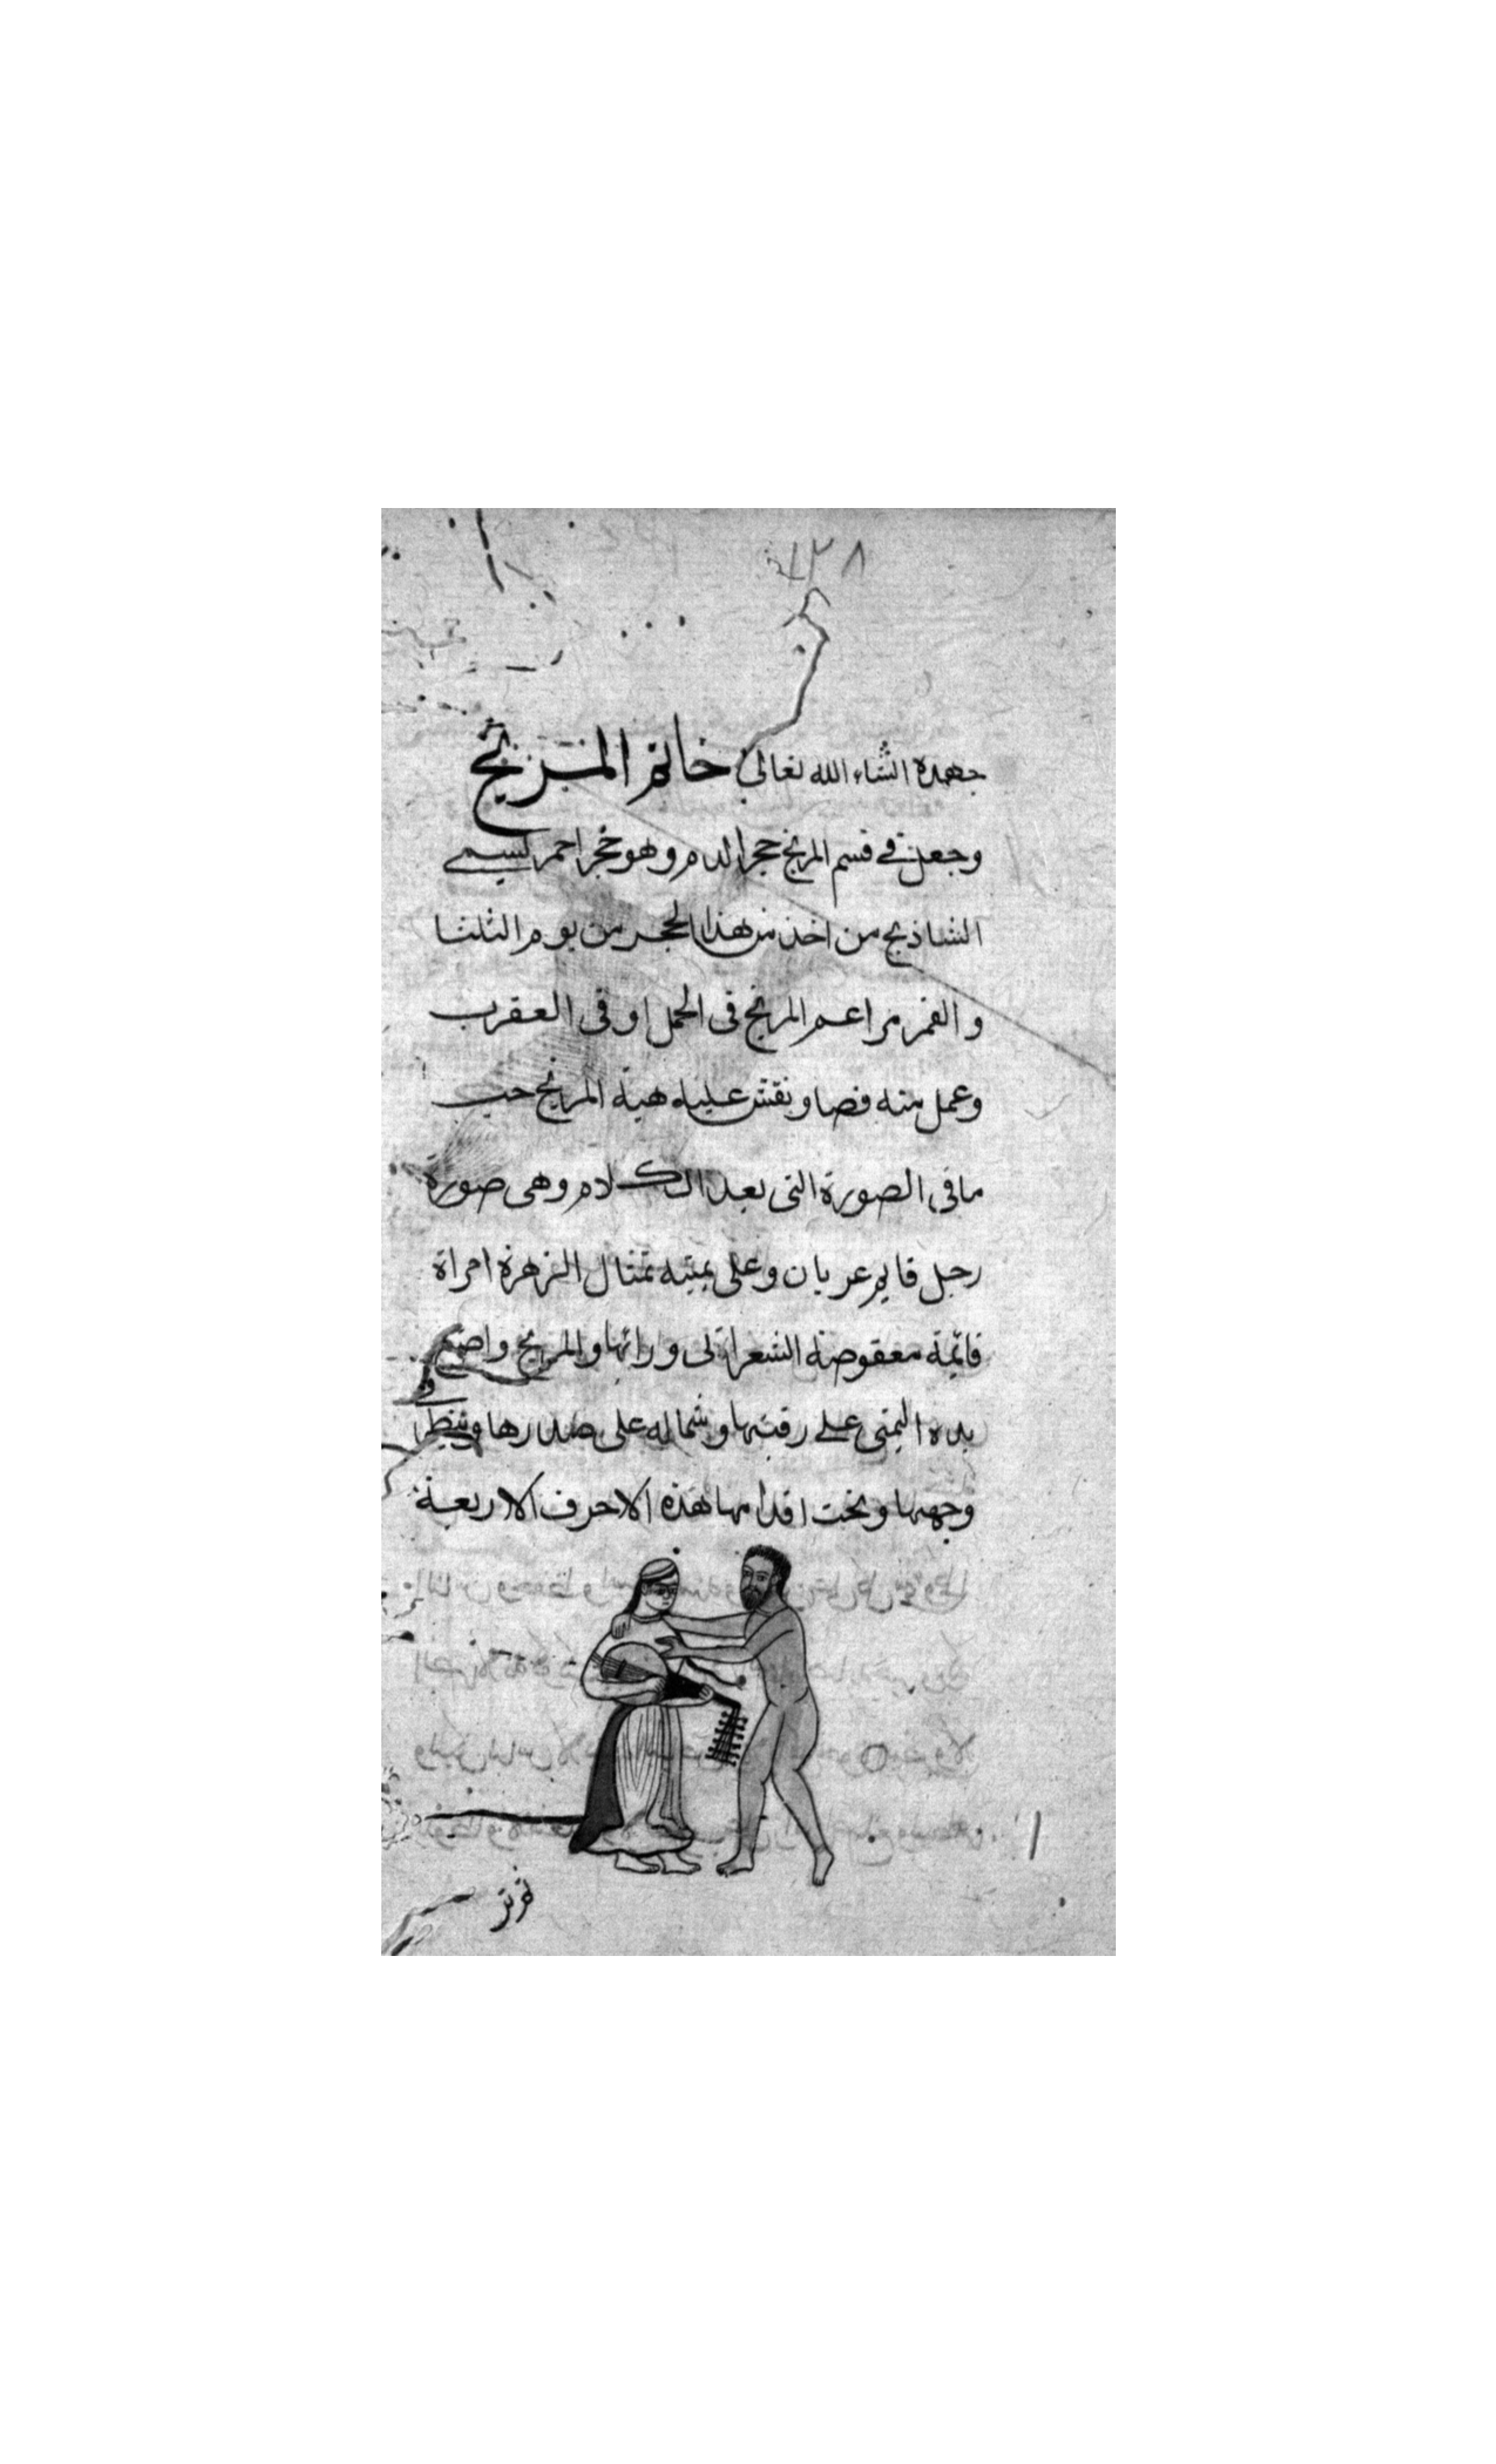 ١٢٨
جهده انشاء الله تعالى خاتم المريخ
وجعلت في قسم المريخ حجر الدم وهو حجر احمر يسمى
الشاذنج من اخذ من هذا الحجر من يوم الثلثا
والقمر مراعم المريخ فى الحمل او فى العقرب
وعمل منه فصا ونقش عليه هية المريخ حسب
ما فى الصورة التى بعد الكلام وهى صورة
رجل قايم عريان وعلى يمينه تمثال الزهرة امراة
قائمة معقوصة الشعر الى ورائها والمريخ واضع
يده اليمنى على رقبتها وشماله على صدرها وينظر
وجهها وتحت اقدامها هذه الاحرف الاربعة